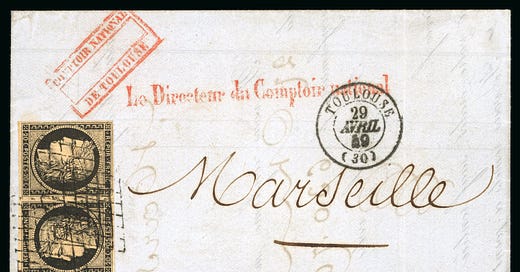 COMPTOIR NATIONAL
DE TOULOUSE
Le Directeur du Comptoir national
TOULOUSE
29
AVRIL
49
(30)
Marseille